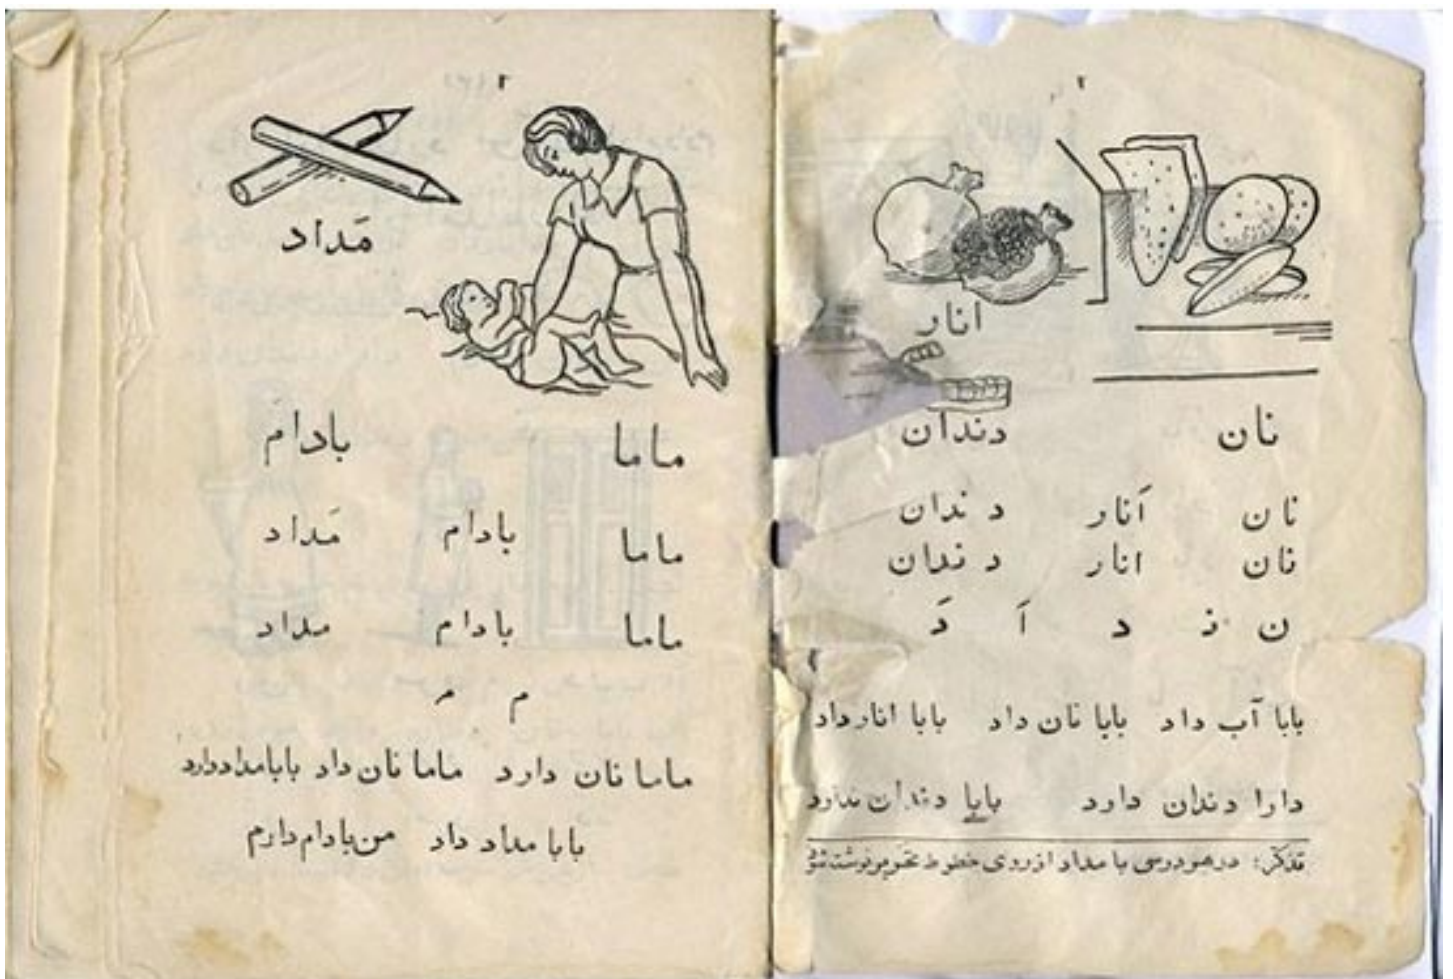 ۲
انار
دندان نان
نان اَنار دندان
نان انار دندان
ن ند اَ دَ
بابا آب داد بابا نان داد بابا انار داد
دارا دندان دارد بابا دندان ندارد
تذکر: در هر درسی با مداد از روی خطوط
مَداد
ماما بادام
ماما بادام مَداد
ماما بادام مداد
م مـ
ماما نان دارد ماما نان داد بابا مداد دارد
بابا مداد داد من بادام دارم